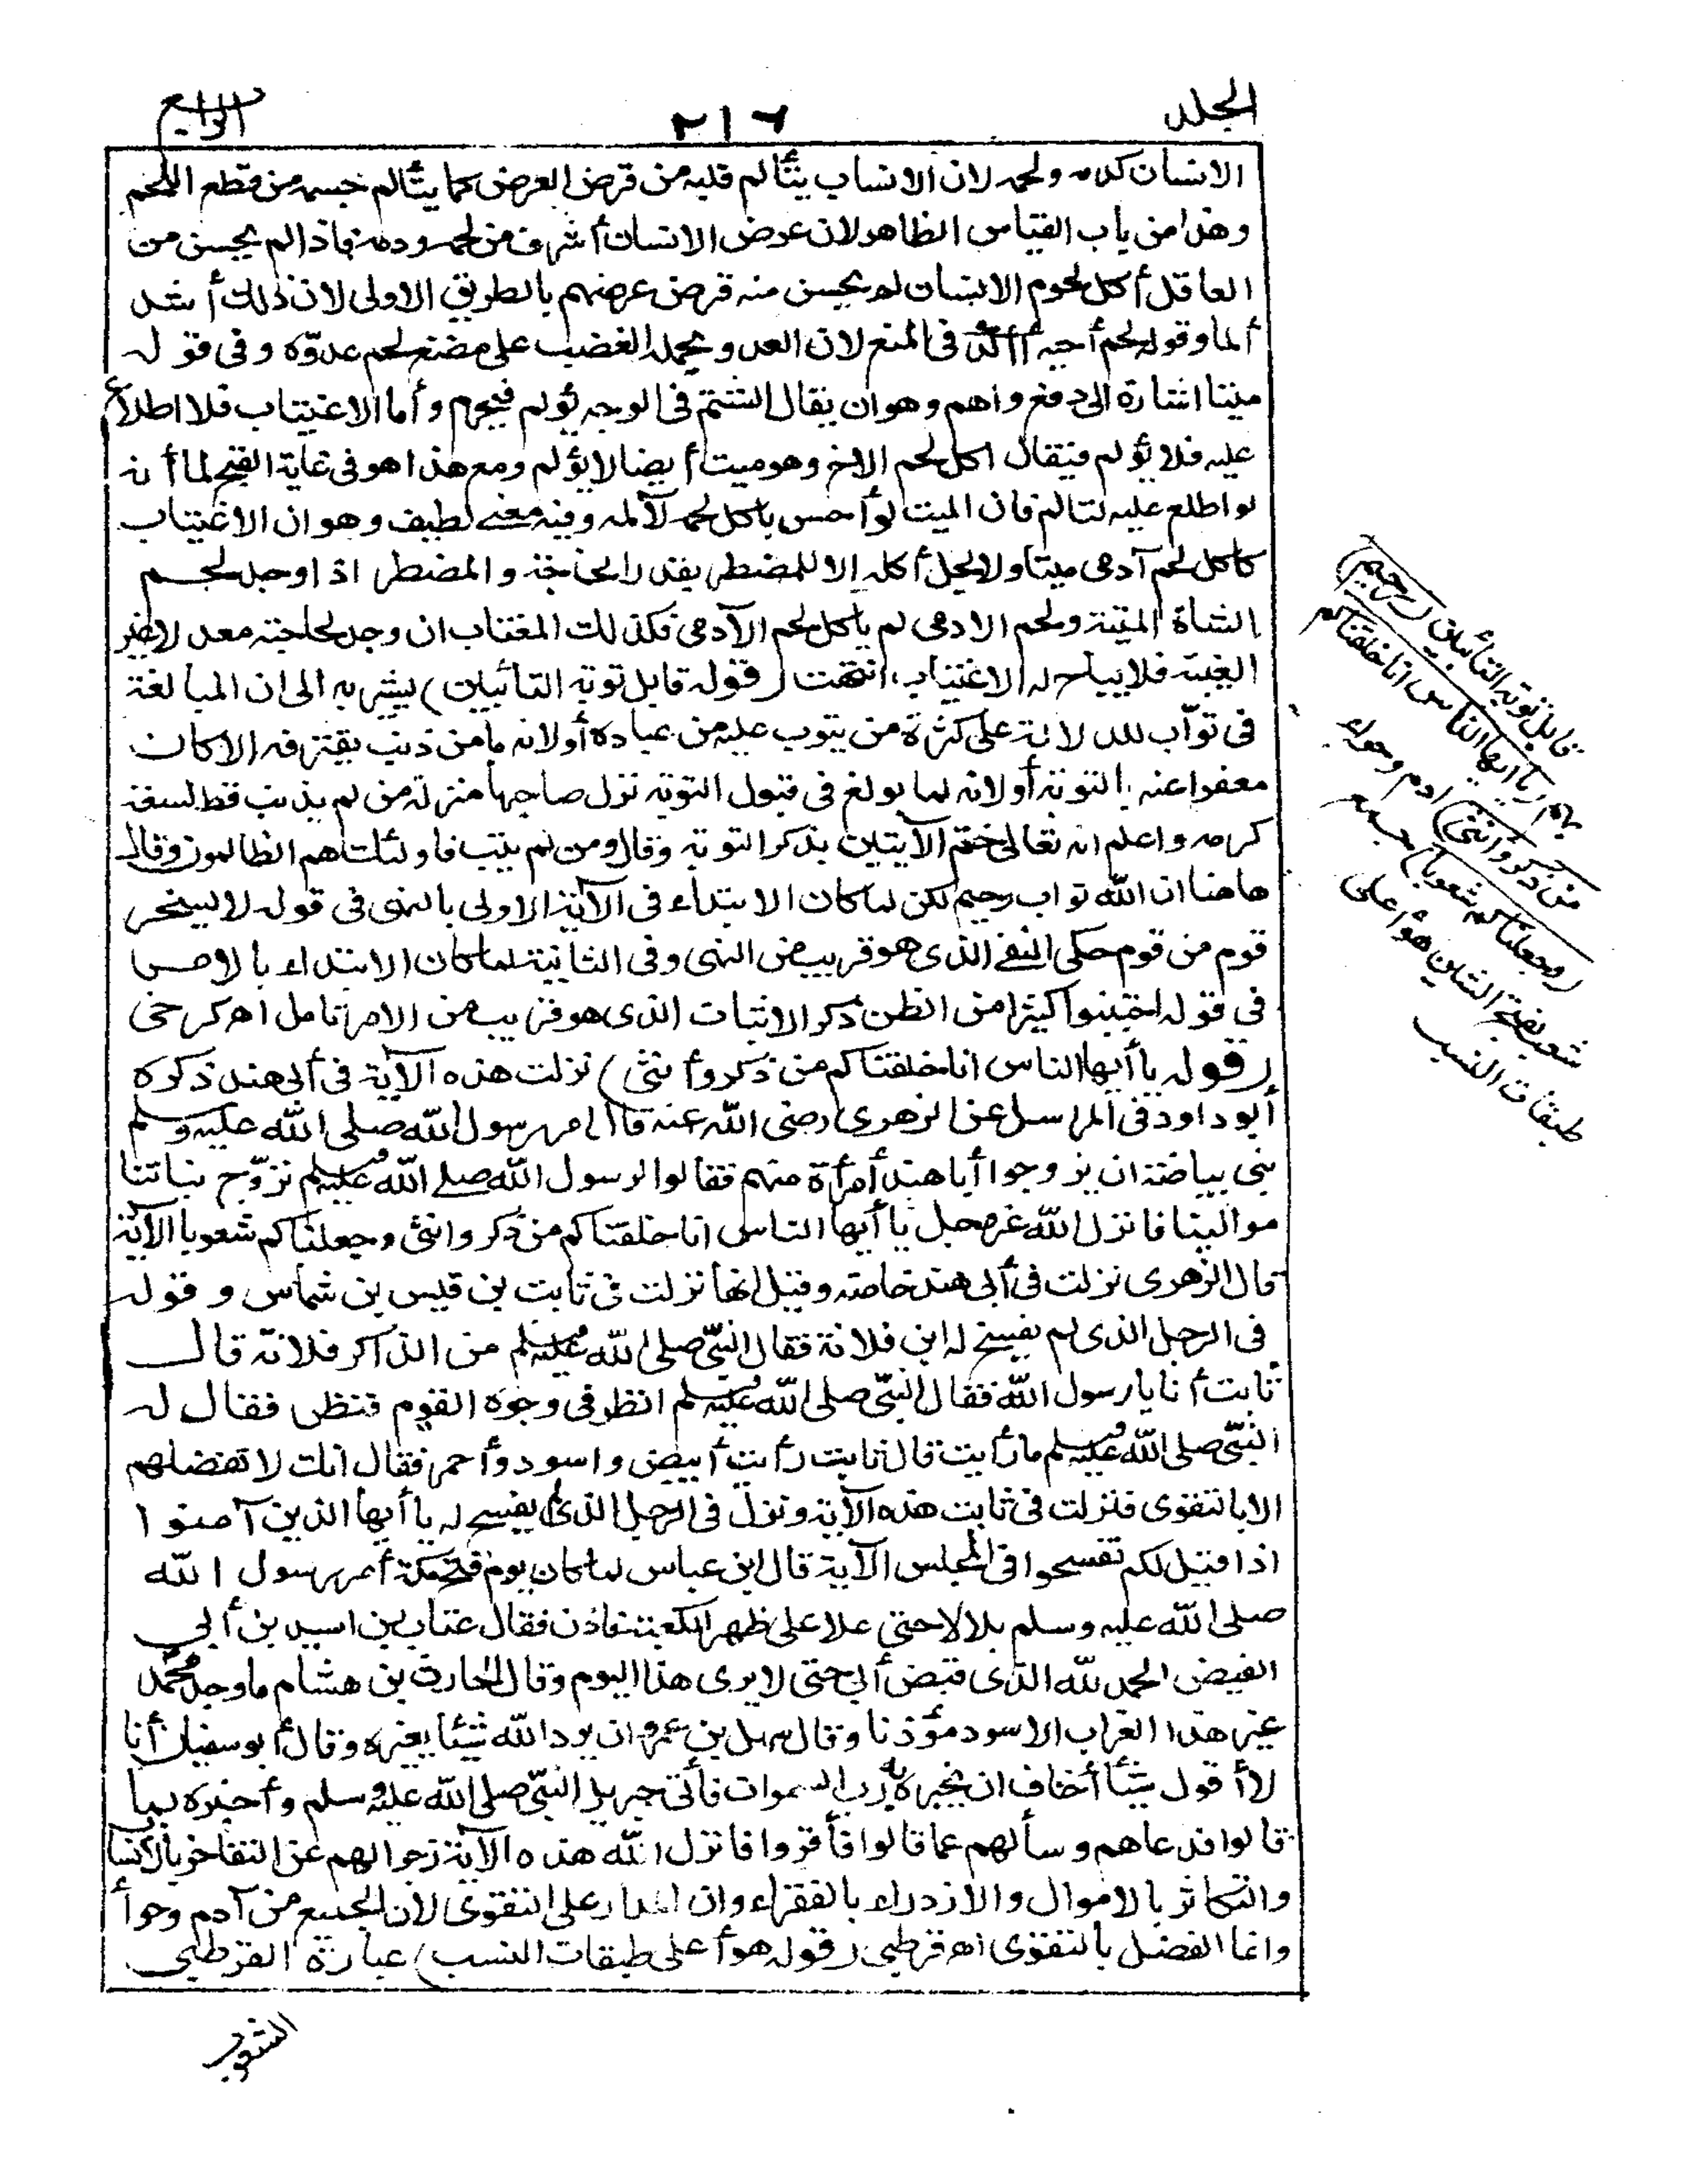 الجلد
٢١٦
الرابع
الانسان كدمه ولحمه لان الانسان يتألم قلبه من قرض العرض كما يتألم جسمه من قطع اللحم
وهذا من باب القياس الظاهر لان عرض الانسان أشرف من لحمه ودمه فاذا لم يحسن من
العاقل أكل لحوم الانسان لم يحسن منه قرض عرضهم بالطريق الاولى لان ذلك أشد
ألما وقوله لحم أخيه آكد فى المنع لان العدو يحمله الغضب على مضغ لحم عدوّه وفى قوله
ميتا اشارة الى دفع واهم وهو ان يقال الشتم فى الوجه يؤلم فيحرم وأما الاغتياب فلا اطلاع
عليه فلا يؤلم فيقال اكل لحم الاخ وهو ميت أيضا لا يؤلم ومع هذا هو فى غاية القبح لما أنه
لو اطلع عليه لتالم فان الميت لو أحس باكل لحمه لآلمه وفيه معنى لطيف وهو ان الاغتياب
كاكل لحم آدمى ميتا ولا يحل أكله إلا للمضطر بقدر الحاجة والمضطر اذا وجد لحم
الشاة الميتة ولحم الادمى لم يأكل لحم الآدمى فكذلك المغتاب ان وجد لحاجته معدلا غير
الغيبة فلا يباح له الاغتياب انتهت (قوله قابل توبة التائبين) يشير به الى ان المبالغة
فى توّاب للدلالة على كثرة من يتوب عليه من عباده أو لانه ما من ذنب يقترفه الا كان
معفوا عنه بالتوبة أو لانه لما بولغ فى قبول التوبة نزل صاحبها منزلة من لم يذنب قط لسعة
كرمه واعلم انه تعالى ختم الآيتين بذكر التوبة وقال ومن لم يتب فاولئك هم الظالمون وقال
هاهنا ان الله تواب رحيم لكن لما كان الابتداء فى الآية الاولى بالنهى فى قوله لا يسخر
قوم من قوم حكى النفى الذى هو قريب من النهى وفى الثانية لما كان الابتداء بالامر
فى قوله اجتنبوا كثيرا من الظن ذكر الاثبات الذى هو قريب من الامر تامل اهـ كرخى
(قوله يا أيها الناس انا خلقناكم من ذكر وأنثى) نزلت هذه الآية فى أبى هند ذكره
أبو داود فى المراسل عن الزهرى رضى الله عنه قال امر رسول الله صلى الله عليه وسلم
بنى بياضة ان يزوجوا أبا هند أمرأة منهم فقالوا لرسول الله صلى الله عليه وسلم نزوّج بناتنا
موالينا فانزل الله عز وجل يا أيها الناس انا خلقناكم من ذكر وانثى وجعلناكم شعوبا الآية
قال الزهرى نزلت فى أبى هند خاصة وقيل انها نزلت فى ثابت بن قيس بن شماس وقوله
فى الرجل الذى لم يفسح له ابن فلانة فقال النبىّ صلى الله عليه وسلم من الذاكر فلانة قال
ثابت أنا يا رسول الله فقال النبىّ صلى الله عليه وسلم انظر فى وجوه القوم فنظر فقال له
النبىّ صلى الله عليه وسلم ما رأيت قال ثابت رأيت أبيض واسود وأحمر فقال انك لا تفضلهم
الا بالتقوى فنزلت فى ثابت هذه الآية ونزل فى الرجل الذى لم يفسح له يا أيها الذين آمنوا
اذا قيل لكم تفسحوا فى المجلس الآية قال ابن عباس لما كان يوم فتح مكة أمر رسول الله
صلى الله عليه وسلم بلالا حتى علا على ظهر الكعبة فاذن فقال عتاب بن اسيد بن أبى
الفيض الحمد لله الذى قبض أبى حتى لا يرى هذا اليوم وقال الحارث بن هشام ما وجد محمد
غير هذا الغراب الاسود مؤذنا وقال سهل بن عمرو ان يرد الله شيئا يغيره وقال أبو سفيان أنا
لا أقول شيئا أخاف ان يخبره به رب السموات فأتى جبريل النبىّ صلى الله عليه وسلم وأخبره بما
قالوا فدعاهم وسألهم عما قالوا فأقروا فانزل الله هذه الآية زجرا لهم عن التفاخر بالانسا
والتكاثر بالاموال والازدراء بالفقراء وان المدار على التقوى لان الجميع من آدم وحوأ
وانما الفضل بالتقوى اهـ قرطبى (قوله هو أعلى طبقات النسب) عبارة القرطبى
الشعوب
قابل توبة التائبين (رحيم)
بهم (يا ايها الناس انا خلقناكم
من ذكر وانثى) ادم وحواء
(وجعلناكم شعوبا) جمع
شعب بفتح الشين هو أعلى
طبقات النسب